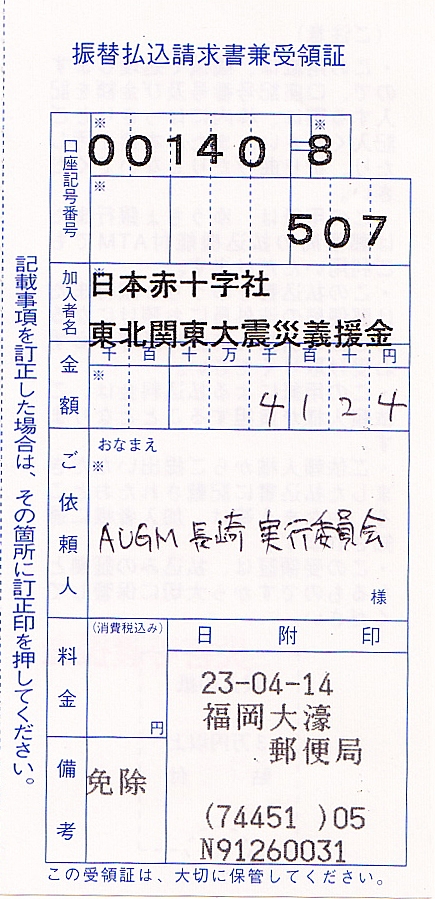 振替払込請求書兼受領証
口座記号番号
※
※
00140=8
※
507
加入者名
※
日本赤十字社
東北関東大震災義援金
金額
千百十万千百十円
※
4124
ご依頼人
おなまえ
※
AUGM 長崎 実行委員会
様
料金
(消費税込み)
円
日附印
23-04-14
福岡大濠
郵便局
(74451 )05
N91260031
備考
免除
記載事項を訂正した場合は、その箇所に訂正印を押してください。
この受領証は、大切に保管してください。